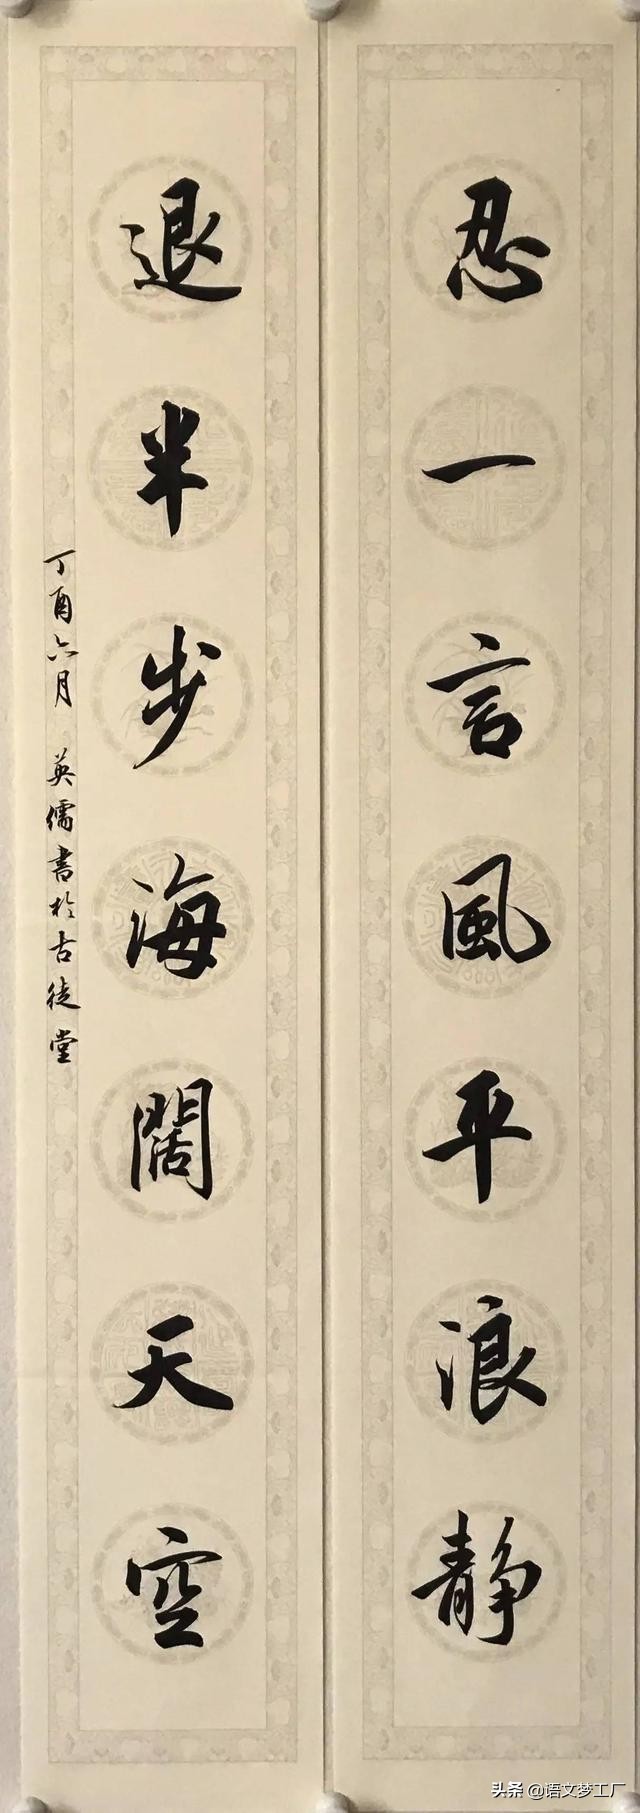 忍一言風平浪静
退半步海闊天空
丁酉六月 英儒書於古徒堂
头条 @语文梦工厂